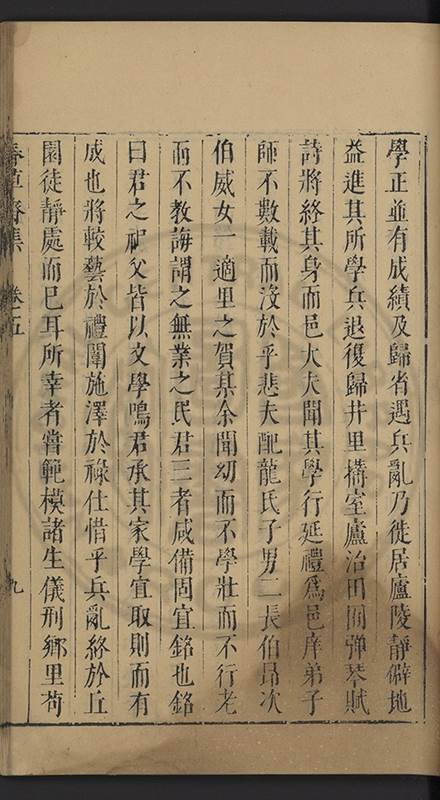 學正並有成績及歸省遇兵亂乃徙居廬陵靜僻地
益進其所學兵退復歸井里構室廬治田園彈琴賦
詩將終其身而邑大夫聞其學行延禮為邑庠弟子
師不數載而沒於乎悲夫配龍氏子男二長伯昂次
伯威女一適里之賀某余聞幼而不學壯而不行老
而不教誨謂之無業之民君三者咸備固宜銘也銘
曰君之祖父皆以文學鳴君承其家學宜取則而有
成也將較藝於禮闈施澤於祿仕惜乎兵亂終於丘
園徒靜處而已耳所幸者嘗範模諸生儀刑鄉里苟
春草齋集 卷五 九